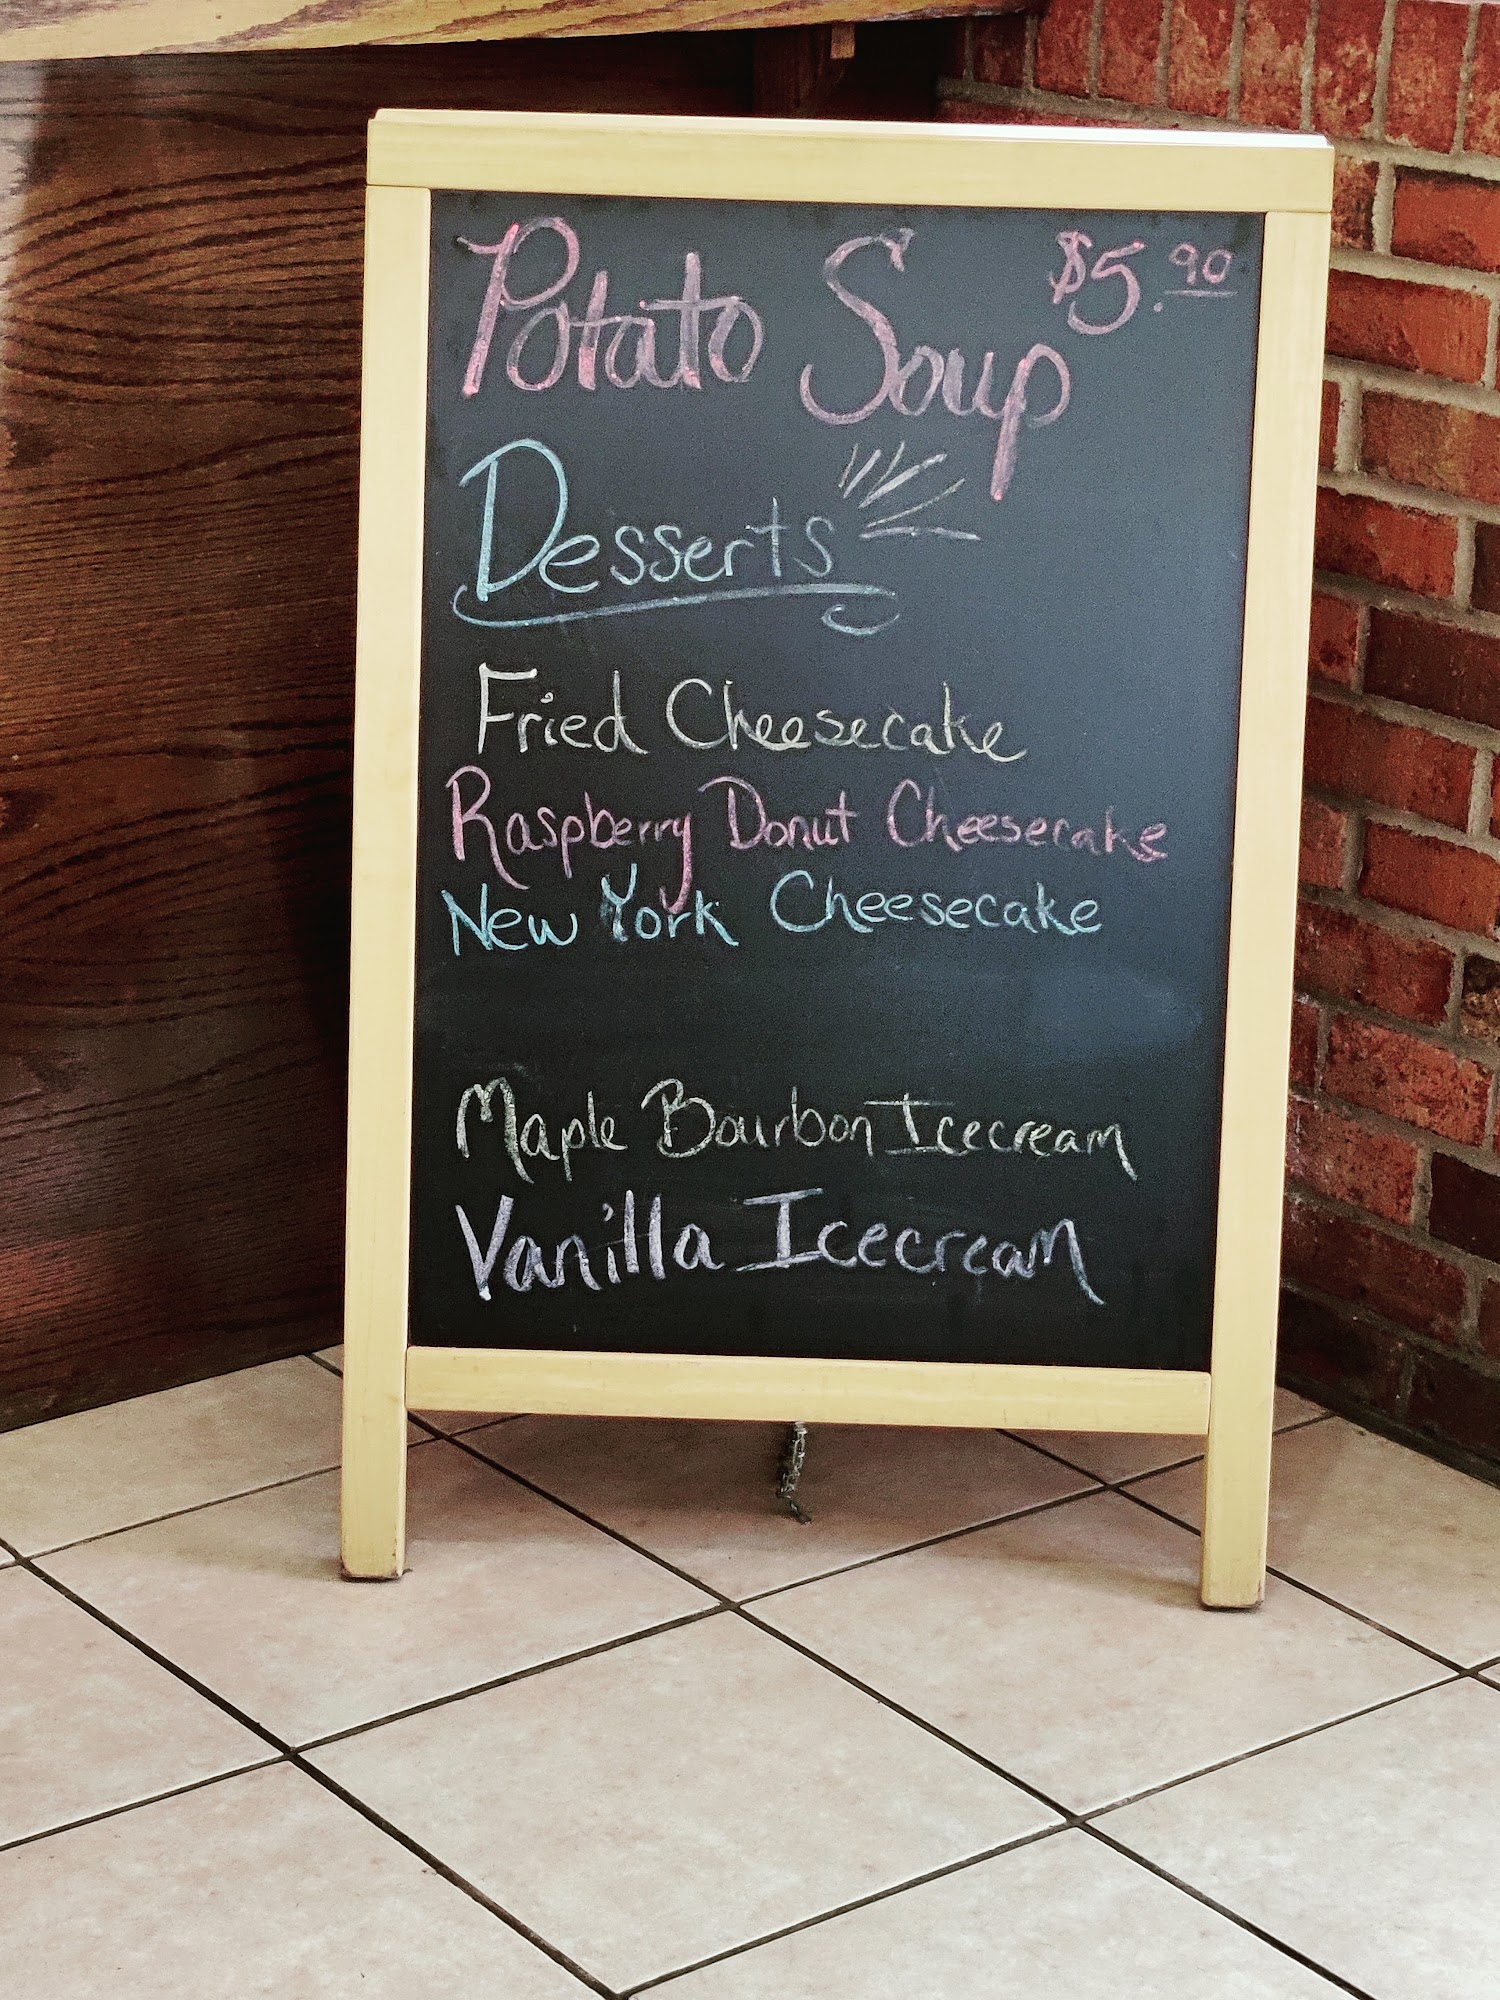 Potato Soup $5.90
Desserts
Fried Cheesecake
Raspberry Donut Cheesecake
New York Cheesecake
Maple Bourbon Icecream
Vanilla Icecream